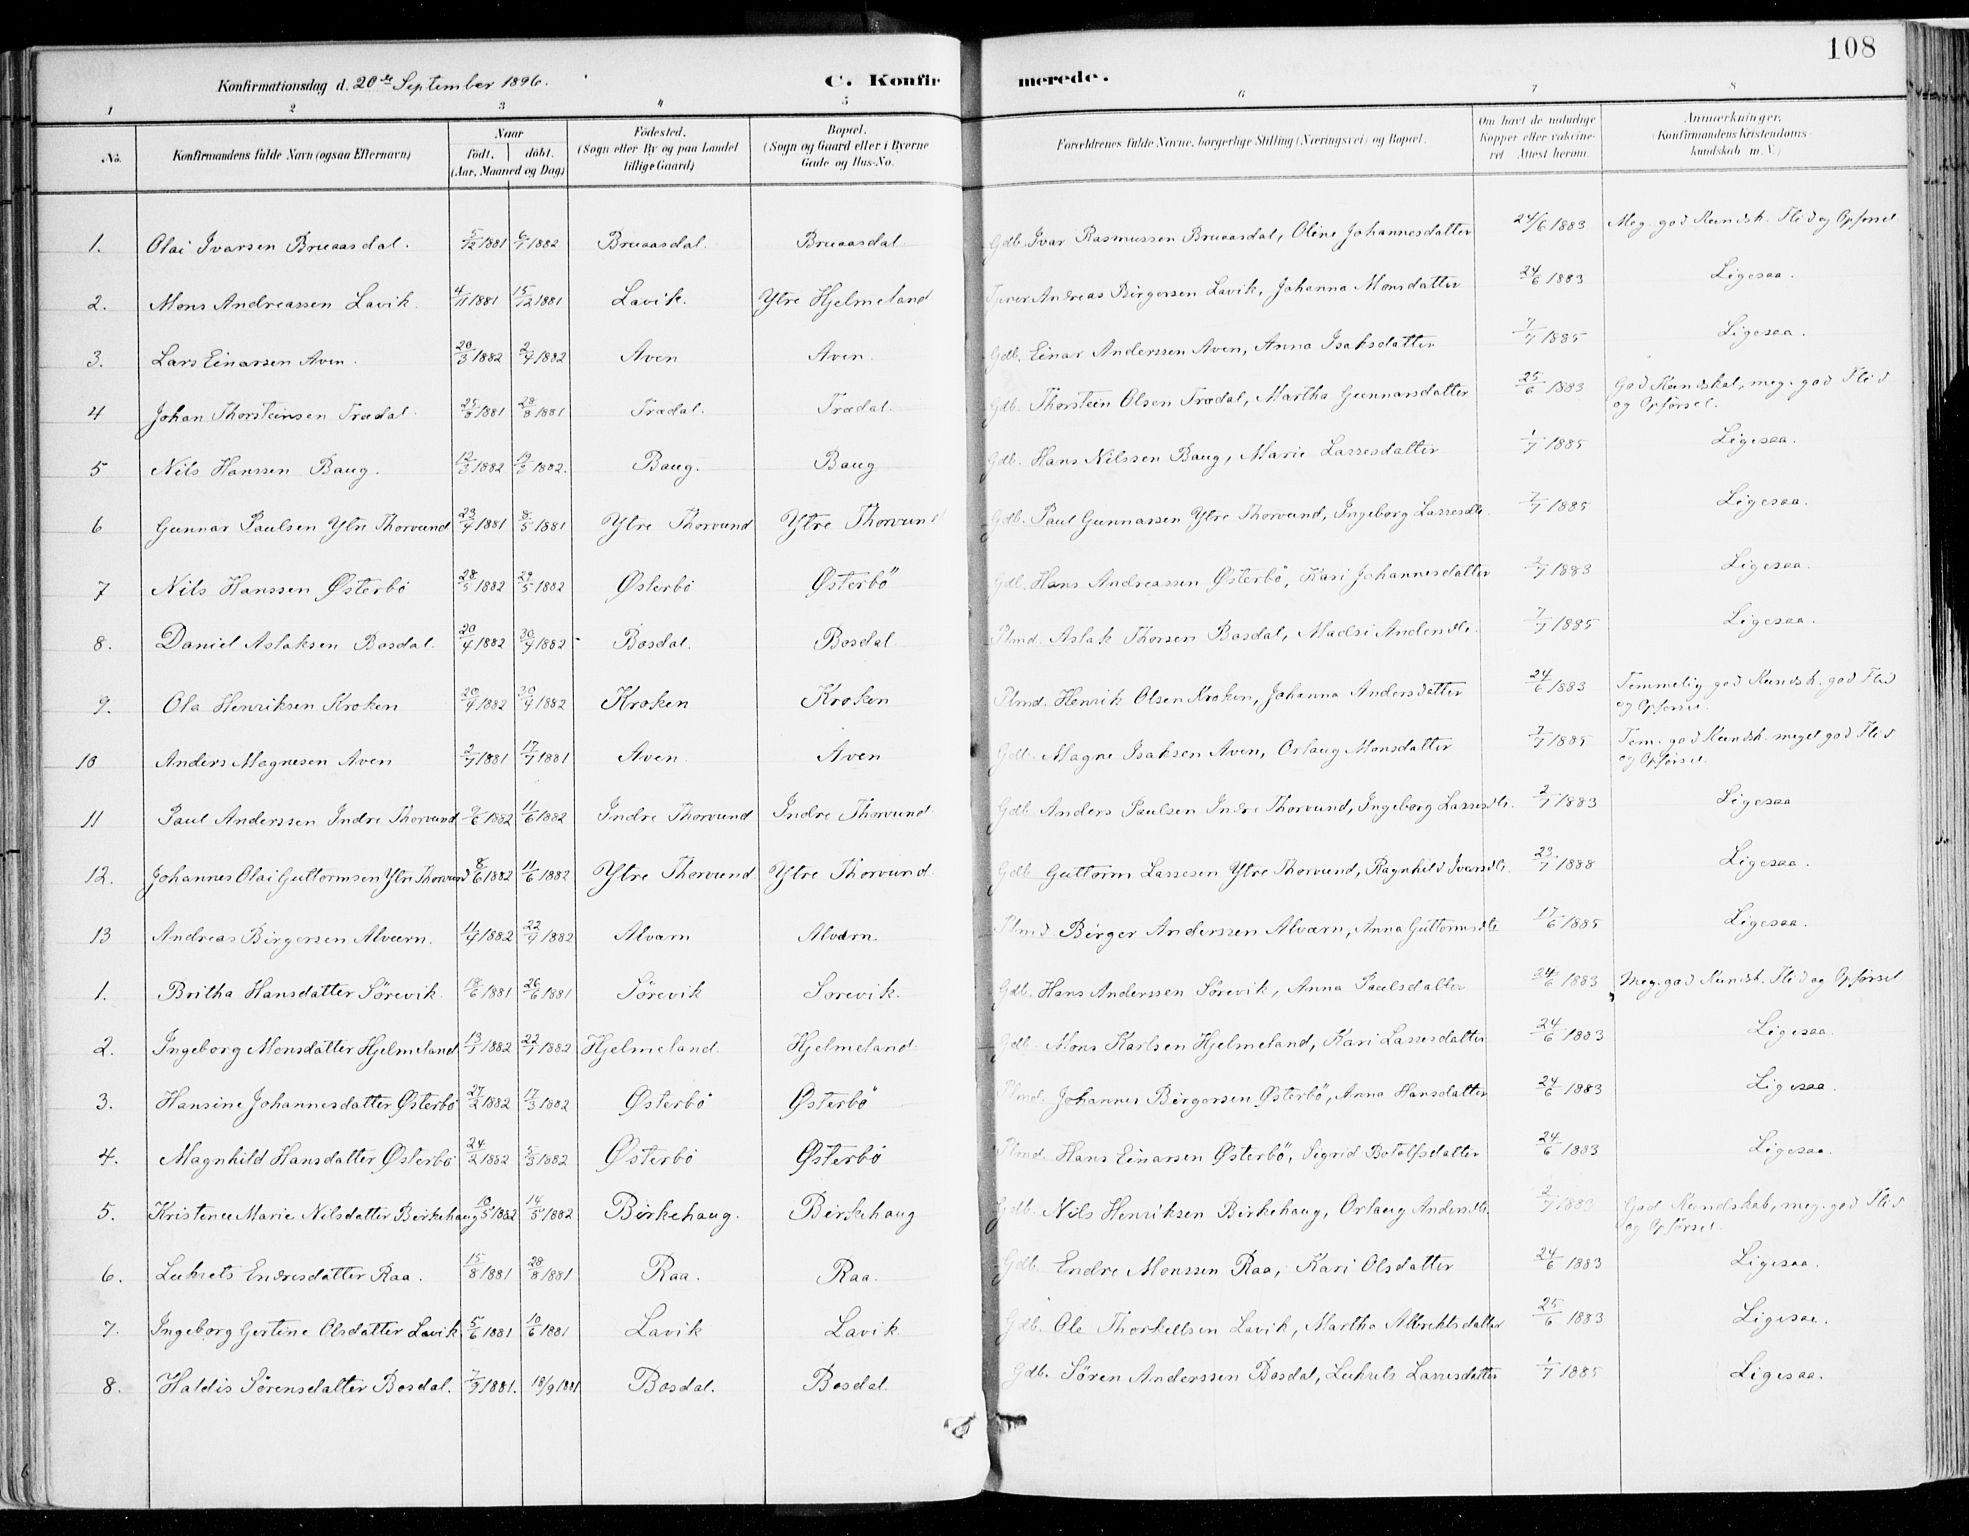 108
Konfirmationsdag d. 20de September 1896.
C. Konfirmerede.
1 2 3 4 5 6 7 8
No. | Konfirmandens fulde Navn (ogsaa Efternavn) | Naar født. | døbt. (Aar, Maaned og Dag) | Fødested. (Sogn eller By og paa Landet tillige Gaard) | Bopæl. (Sogn og Gaard eller i Byerne Gade og Hus-No. | Forældrenes fulde Navne, borgerlige Stilling (Næringsvei) og Bopæl. | Om havt de naturlige Kopper eller vakcineret. Attest herom. | Anmærkninger. (Konfirmandens Kristendomskundskab m. V.)
1. Olai Ivarsen Bruaasdal. 5/12 1881 6/1 1882 Bruaasdal. Bruaasdal Gdb. Ivar Rasmussen Bruaasdal, Oline Johannesdatter 24/6 1883 Meg. god Kundsk. Flid og Opførsel
2. Mons Andreassen Lavik. 4/11 1881 15/12 1881 Lavik. Ytre Hjelmeland Andreas Birgersen Lavik, Johanna Monsdatter 24/6 1883 Ligesaa.
3. Lars Einarsen Aven. 20/3 1882 2/4 1882 Aven Aven. Gdb. Einar Anderssen Aven, Anna Isaksdatter 7/7 1885 Ligesaa.
4 Johan Thorsteinsen Trædal. 25/8 1881 28/8 1881 Trædal. Trædal. Gdb. Thorstein Olsen Trædal, Martha Gunnarsdatter 25/6 1883 God Kundskab, meg. god Flid
og Opførsel.
5 Nils Hanssen Baug. 12/3 1882 19/3 1882. Baug. Baug Gdb. Hans Nilssen Baug, Marie Lassesdatter 1/7 1885 Ligesaa.
6 Gunnar Paulsen Ytre Thorvund 23/4 1881 8/5 1881 Ytre Thorvund Ytre Thorvund Gdb. Paul Gunnarsen Ytre Thorvund, Ingeborg Lassesdtr. 7/7 1885 Ligesaa.
7 Nils Hanssen Østerbö 28/5 1882 29/5 1882 Østerbö Østerbö Gdb. Hans Andreassen Østerbö, Kari Johannesdatter 2/7 1883 Ligesaa.
8. Daniel Aslaksen Bosdal. 20/4 1882 30/4 1882 Bosdal. Bosdal. Plmd. Aslak Thorsen Bosdal, Madsi Andersdtr. 7/7 1885 Ligesaa.
9. Ola Henriksen Kroken 20/4 1882 30/4 1882 Kroken Kroken Plmd. Henrik Olsen Kroken, Johanna Andersdatter 24/6 1883 Temmelig god Kundsk. god Flid
og Opførsel.
10 Anders Magnesen Aven 2/7 1881 17/7 1881 Aven. Aven Gdb. Magne Isaksen Aven, Orlaug Monsdatter 7/7 1885 Tem. god Kundsk. meget god Flid
og Opførsel.
11 Paul Anderssen Indre Thorvund 9/6 1882 11/6 1882 Indre Thorvund Indre Thorvund. Gdb. Anders Paulsen Indre Thorvund, Ingeborg Lassesdtr. 2/7 1883 Ligesaa
12. Johannes Olai Guttormsen Ytre Thorvund 8/6 1882 11/6 1882 Ytre Thorvund Ytre Thorvund. Gdb. Guttorm Lassesen Ytre Thorvund, Ragnhild Ivarsdtr. 23/7 1888 Ligesaa.
13 Andreas Birgersen Alværn. 11/4 1882 22/4 1882 Alværn Alværn. Plmd. Birger Anderssen Alværn, Anna Guttormsdtr 17/6 1885 Ligesaa.
1. Britha Hansdatter Sörevik. 18/6 1881 26/6 1881 Sörevik Sorevik. Gdb. Hans Anderssen Sörevik, Anna Paulsdatter 24/6 1883 Meg. god Kundsk. Flid og Opførsel
2. Ingeborg Monsdatter Hjelmeland. 13/7 1882 22/7 1882 Hjelmeland. Hjelmeland. Gdb. Mons Karlsen Hjelmeland, Kari Lassesdatter 24/6 1883 Ligesaa.
3. Hansine Johannesdatter Østerbö 27/2 1882 17/3 1882 Østerbö Østerbö Plmd. Johannes Birgersen Østerbö, Anna Hansdatter 24/6 1883 Ligesaa.
4. Magnhild Hansdatter Østerbö 24/2 1882 5/3 1882 Østerbö Østerbö Plmd. Hans Einarsen Østerbö, Sigrid Botolfsdatter 24/6 1883 Ligesaa.
5. Kristence Marie Nilsdatter Birkehaug 10/5 1882 14/5 1882 Birkehaug. Birkehaug Gdb. Nils Henriksen Birkehaug, Orlaug Andersdtr. 2/7 1883 God Kundskab, meg. god Flid
og Opførsel.
6. Lukrets Endresdatter Raa. 15/8 1881 28/8 1881 Raa. Raa. Gdb. Endre Monssen Raa, Kari Olsdatter 24/6 1883 Ligesaa.
7. Ingeborg Gertine Olsdatter Lavik. 5/6 1881 10/6 1881 Lavik Lavik. Gdb. Ole Thorkellsen Lavik, Martha Albrektsdatter 25/6 1883 Ligesaa.
8. Haldis Sörensdatter Bosdal. 7/9 1881. 18/9 1881. Bosdal. Bosdal. Gdb. Sören Anderssen Bosdal, Lukrets Lassesdatter 1/7 1885 Ligesaa.